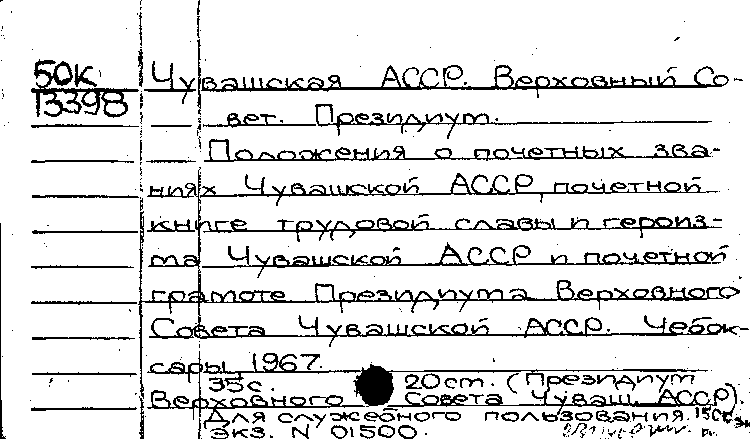 50К Чувашская АССР. Верховный Со-
13398 вет. Президиум.
Положения о почетных зва-
ниях Чувашской АССР, почетной
книге трудовой славы и героиз-
ма Чувашской АССР и почетной
грамоте Президиума Верховного
Совета Чувашской АССР. Чебок-
сары, 1967.
35с. 20см. (Президиум
Верховного Совета Чуваш. АССР).
Для служебного пользования.
Экз. N 01500.